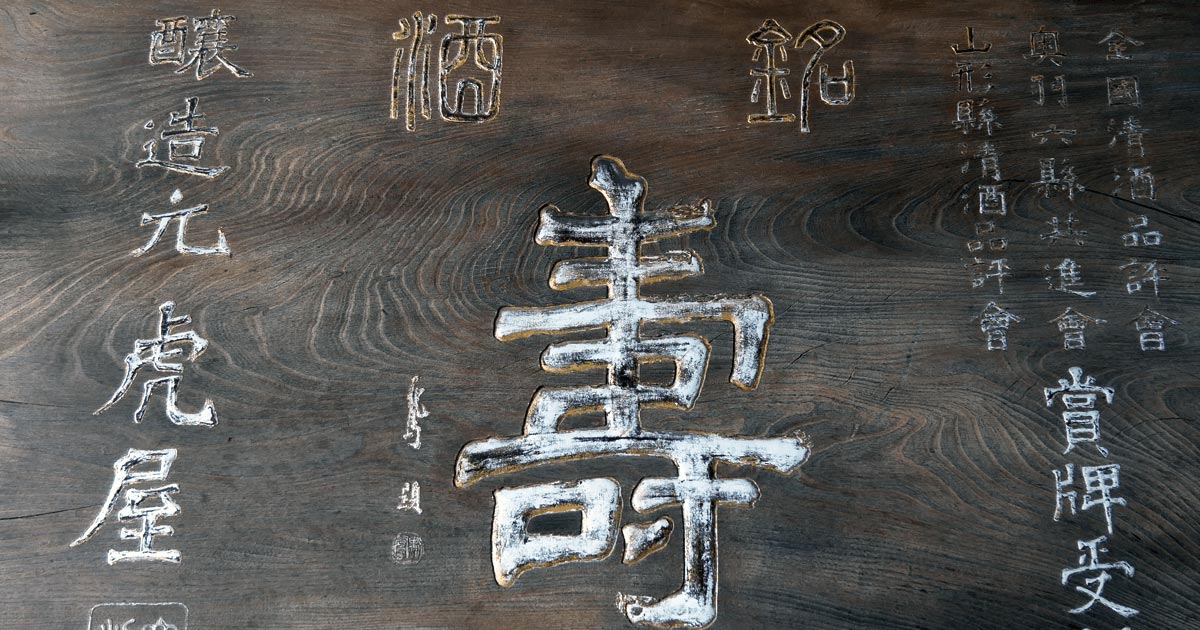 全國清酒品評會
奥羽六縣共進會
山形縣清酒品評會
賞牌受
銘酒
壽
釀造元
虎屋